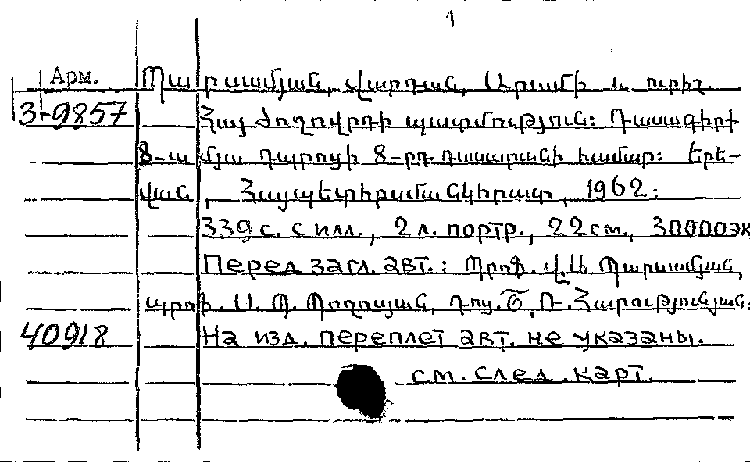 1
Арм. Պարսամյան, Վարդան, Արամի և ուրիշ
3-9857 Հայ ժողովրդի պատմություն: Դասագիրք
8-ամյա դպրոցի 8-րդ դասարանի համար: Երե-
վան, Հայպետհրատ, 1962:
339 с. с илл., 2 л. портр., 22 см, 30000 эк
Перед загл. авт.: Պրոֆ. Վ.Ա. Պարսամյան,
պրոֆ. Ս. Պ. Պողոսյան, դոց. Շ. Ռ. Հարությունյան:
40918 На изд. переплет авт. не указаны.
см. след. карт.